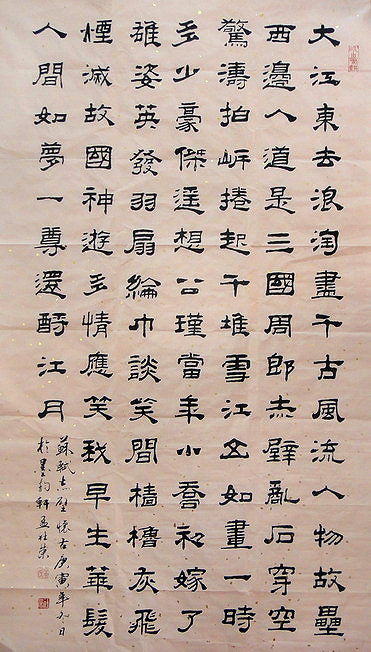 大江東去浪淘盡千古風流人物故壘
西邊人道是三國周郎赤壁亂石穿空
驚濤拍岸捲起千堆雪江山如畫一時
多少豪傑遙想公瑾當年小喬初嫁了
雄姿英發羽扇綸巾談笑間檣櫓灰飛
煙滅故國神遊多情應笑我早生華髮
人間如夢一尊還酹江月
蘇軾赤壁懷古庚寅年九日
於墨軒孟